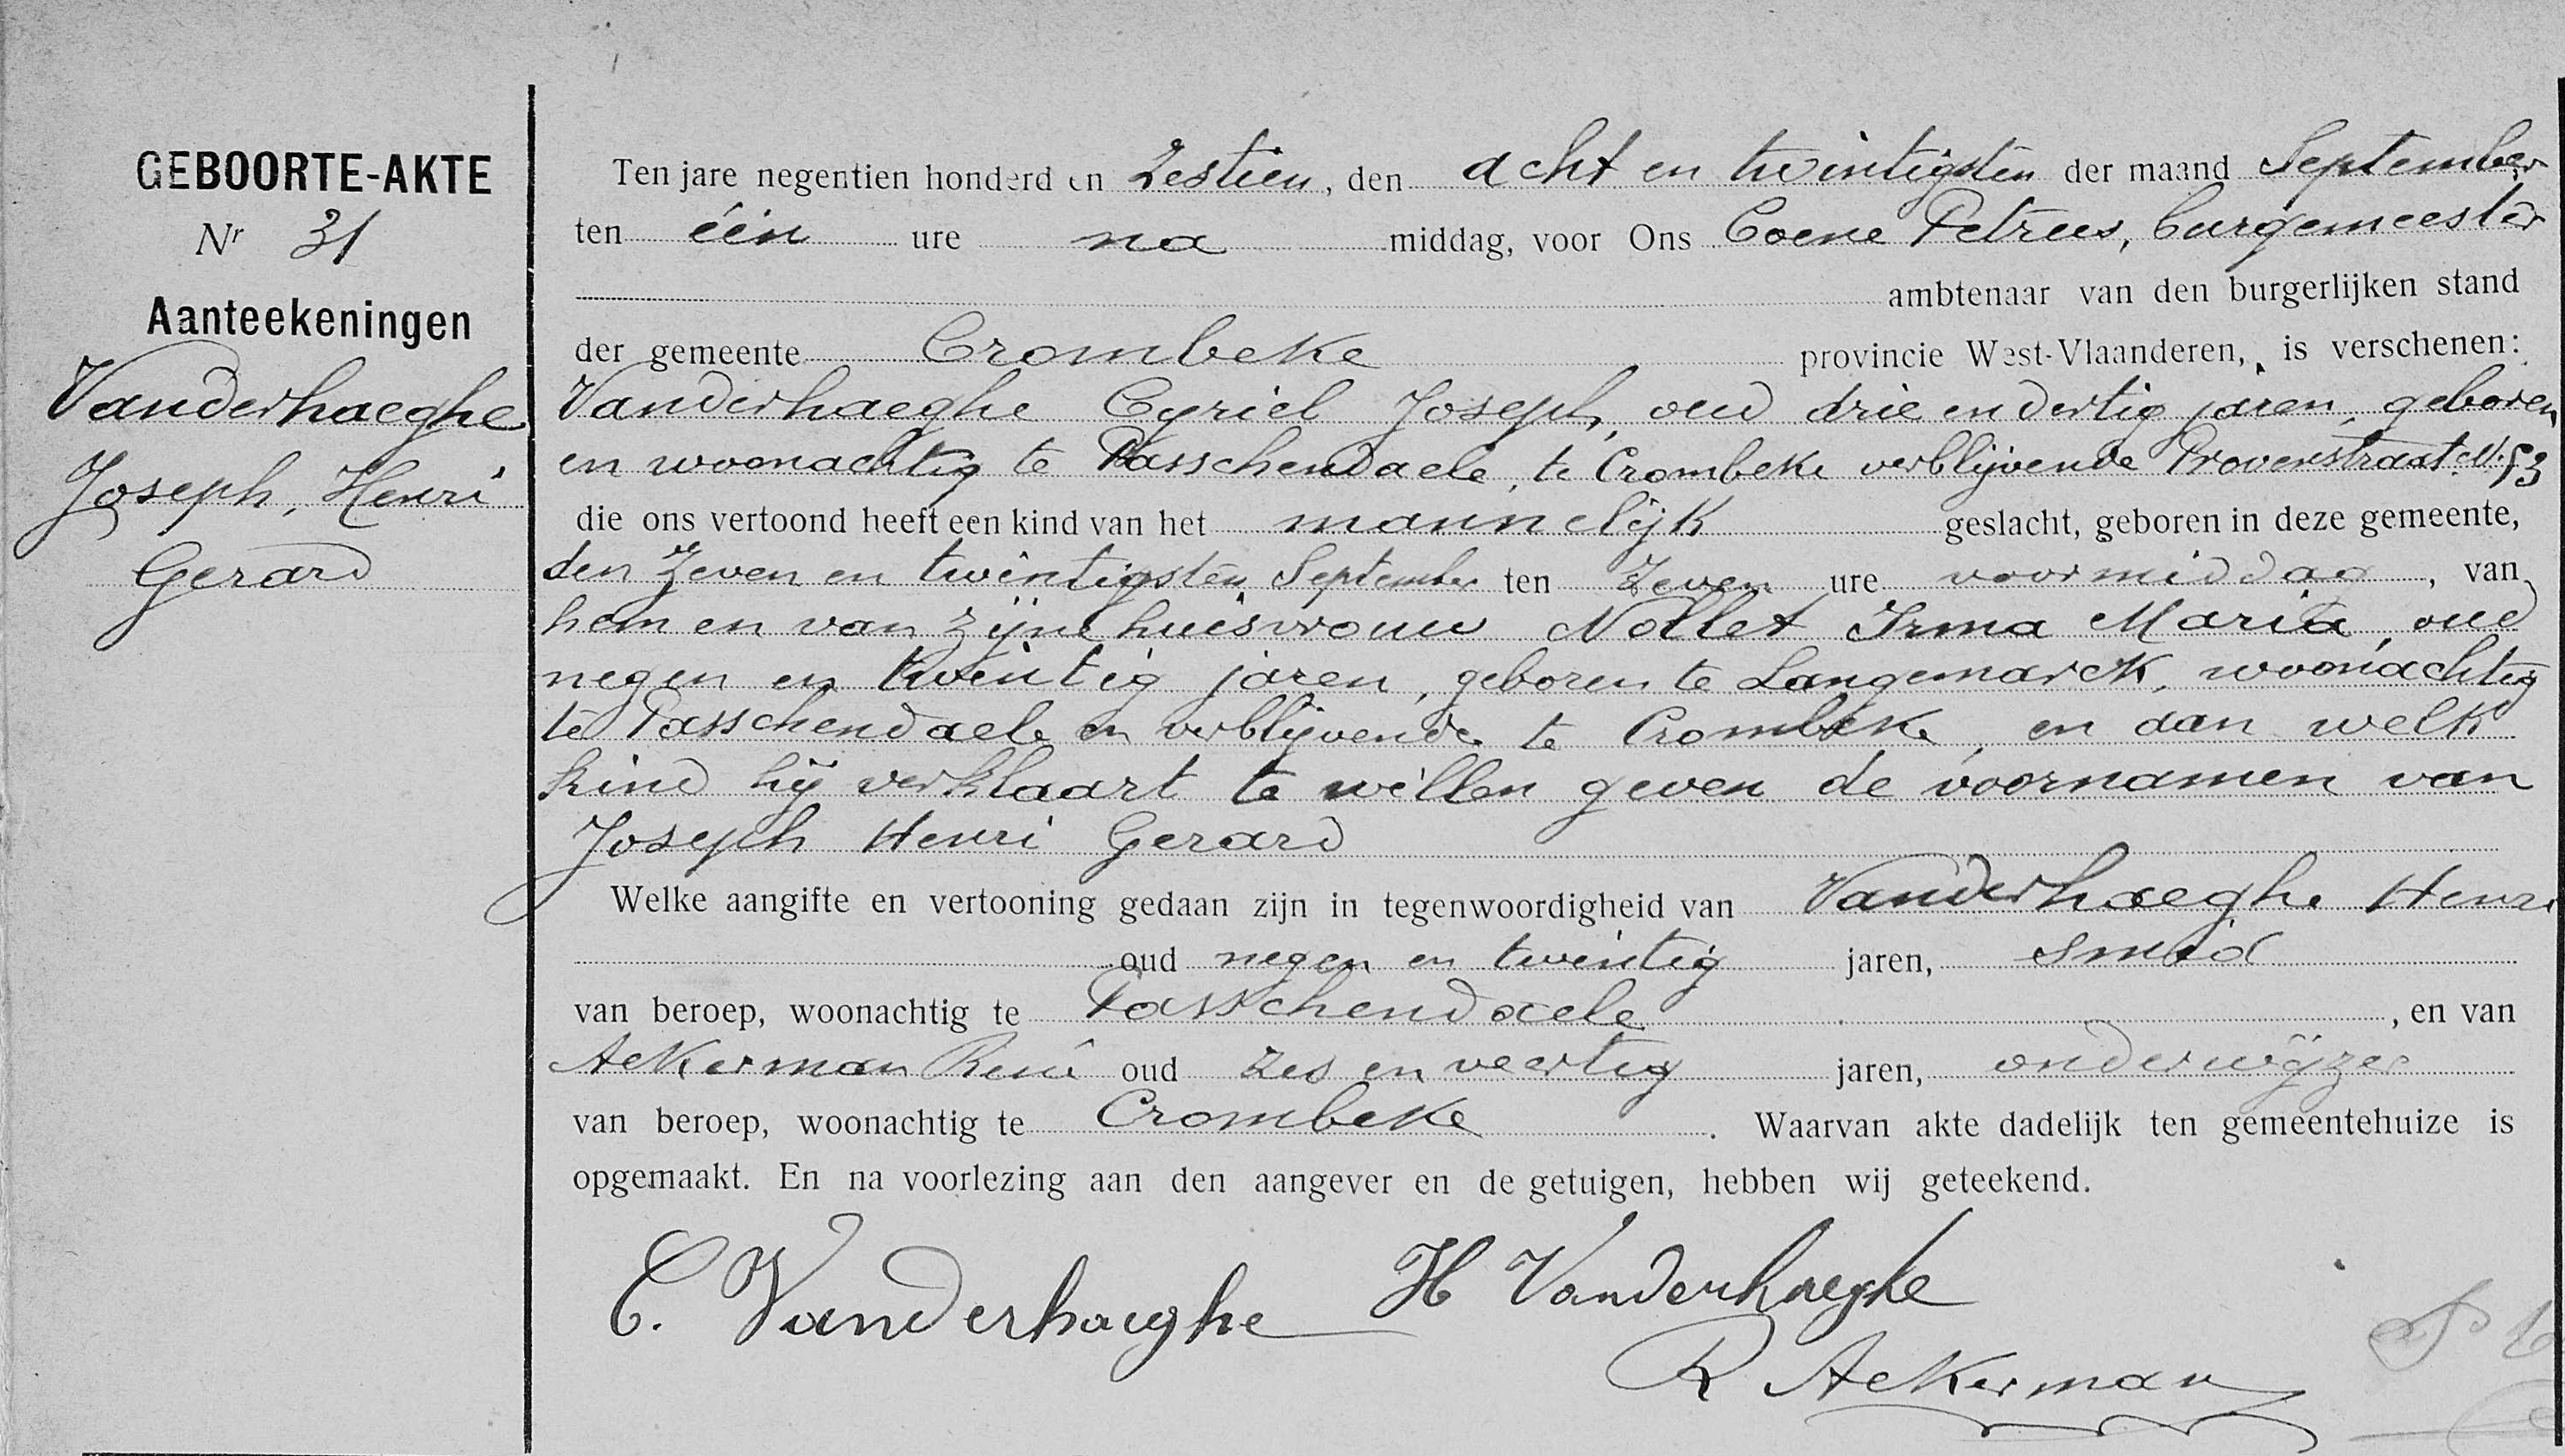 GEBOORTE-AKTE
Nr 31
Aanteekeningen
Vanderhaeghe
Joseph, Henri
Gerard
Ten jare negentien honderd en Zestien, den acht en twintigsten der maand September
ten één ure na middag, voor Ons Coene Petrus, burgemeester
ambtenaar van den burgerlijken stand
der gemeente Crombeke provincie West-Vlaanderen, is verschenen:
Vanderhaeghe Cyriel Joseph, oud drie en dertig jaren, geboren
en woonachtig te Passchendaele, te Crombeke verblijvende Provenstraat N. 53
die ons vertoond heeft een kind van het mannelijk geslacht, geboren in deze gemeente,
den Zeven en twintigsten September ten Zeven ure voormiddag, van
hem en van zijne huisvrouw Nollet Irma Maria, oud
negen en twintig jaren, geboren te Langemarck, woonachtig
te Passchendaele en verblijvende te Crombeke, en aan welk
kind hij verklaart te willen geven de voornamen van
Joseph Henri Gerard
Welke aangifte en vertooning gedaan zijn in tegenwoordigheid van Vanderhaeghe Henri
oud negen en twintig jaren, smid
van beroep, woonachtig te Passchendaele, en van
Ackerman René oud zes en veertig jaren, onderwijzer
van beroep, woonachtig te Crombeke. Waarvan akte dadelijk ten gemeentehuize is
opgemaakt. En na voorlezing aan den aangever en de getuigen, hebben wij geteekend.
C. Vanderhaeghe H Vanderhaeghe
R Ackerman